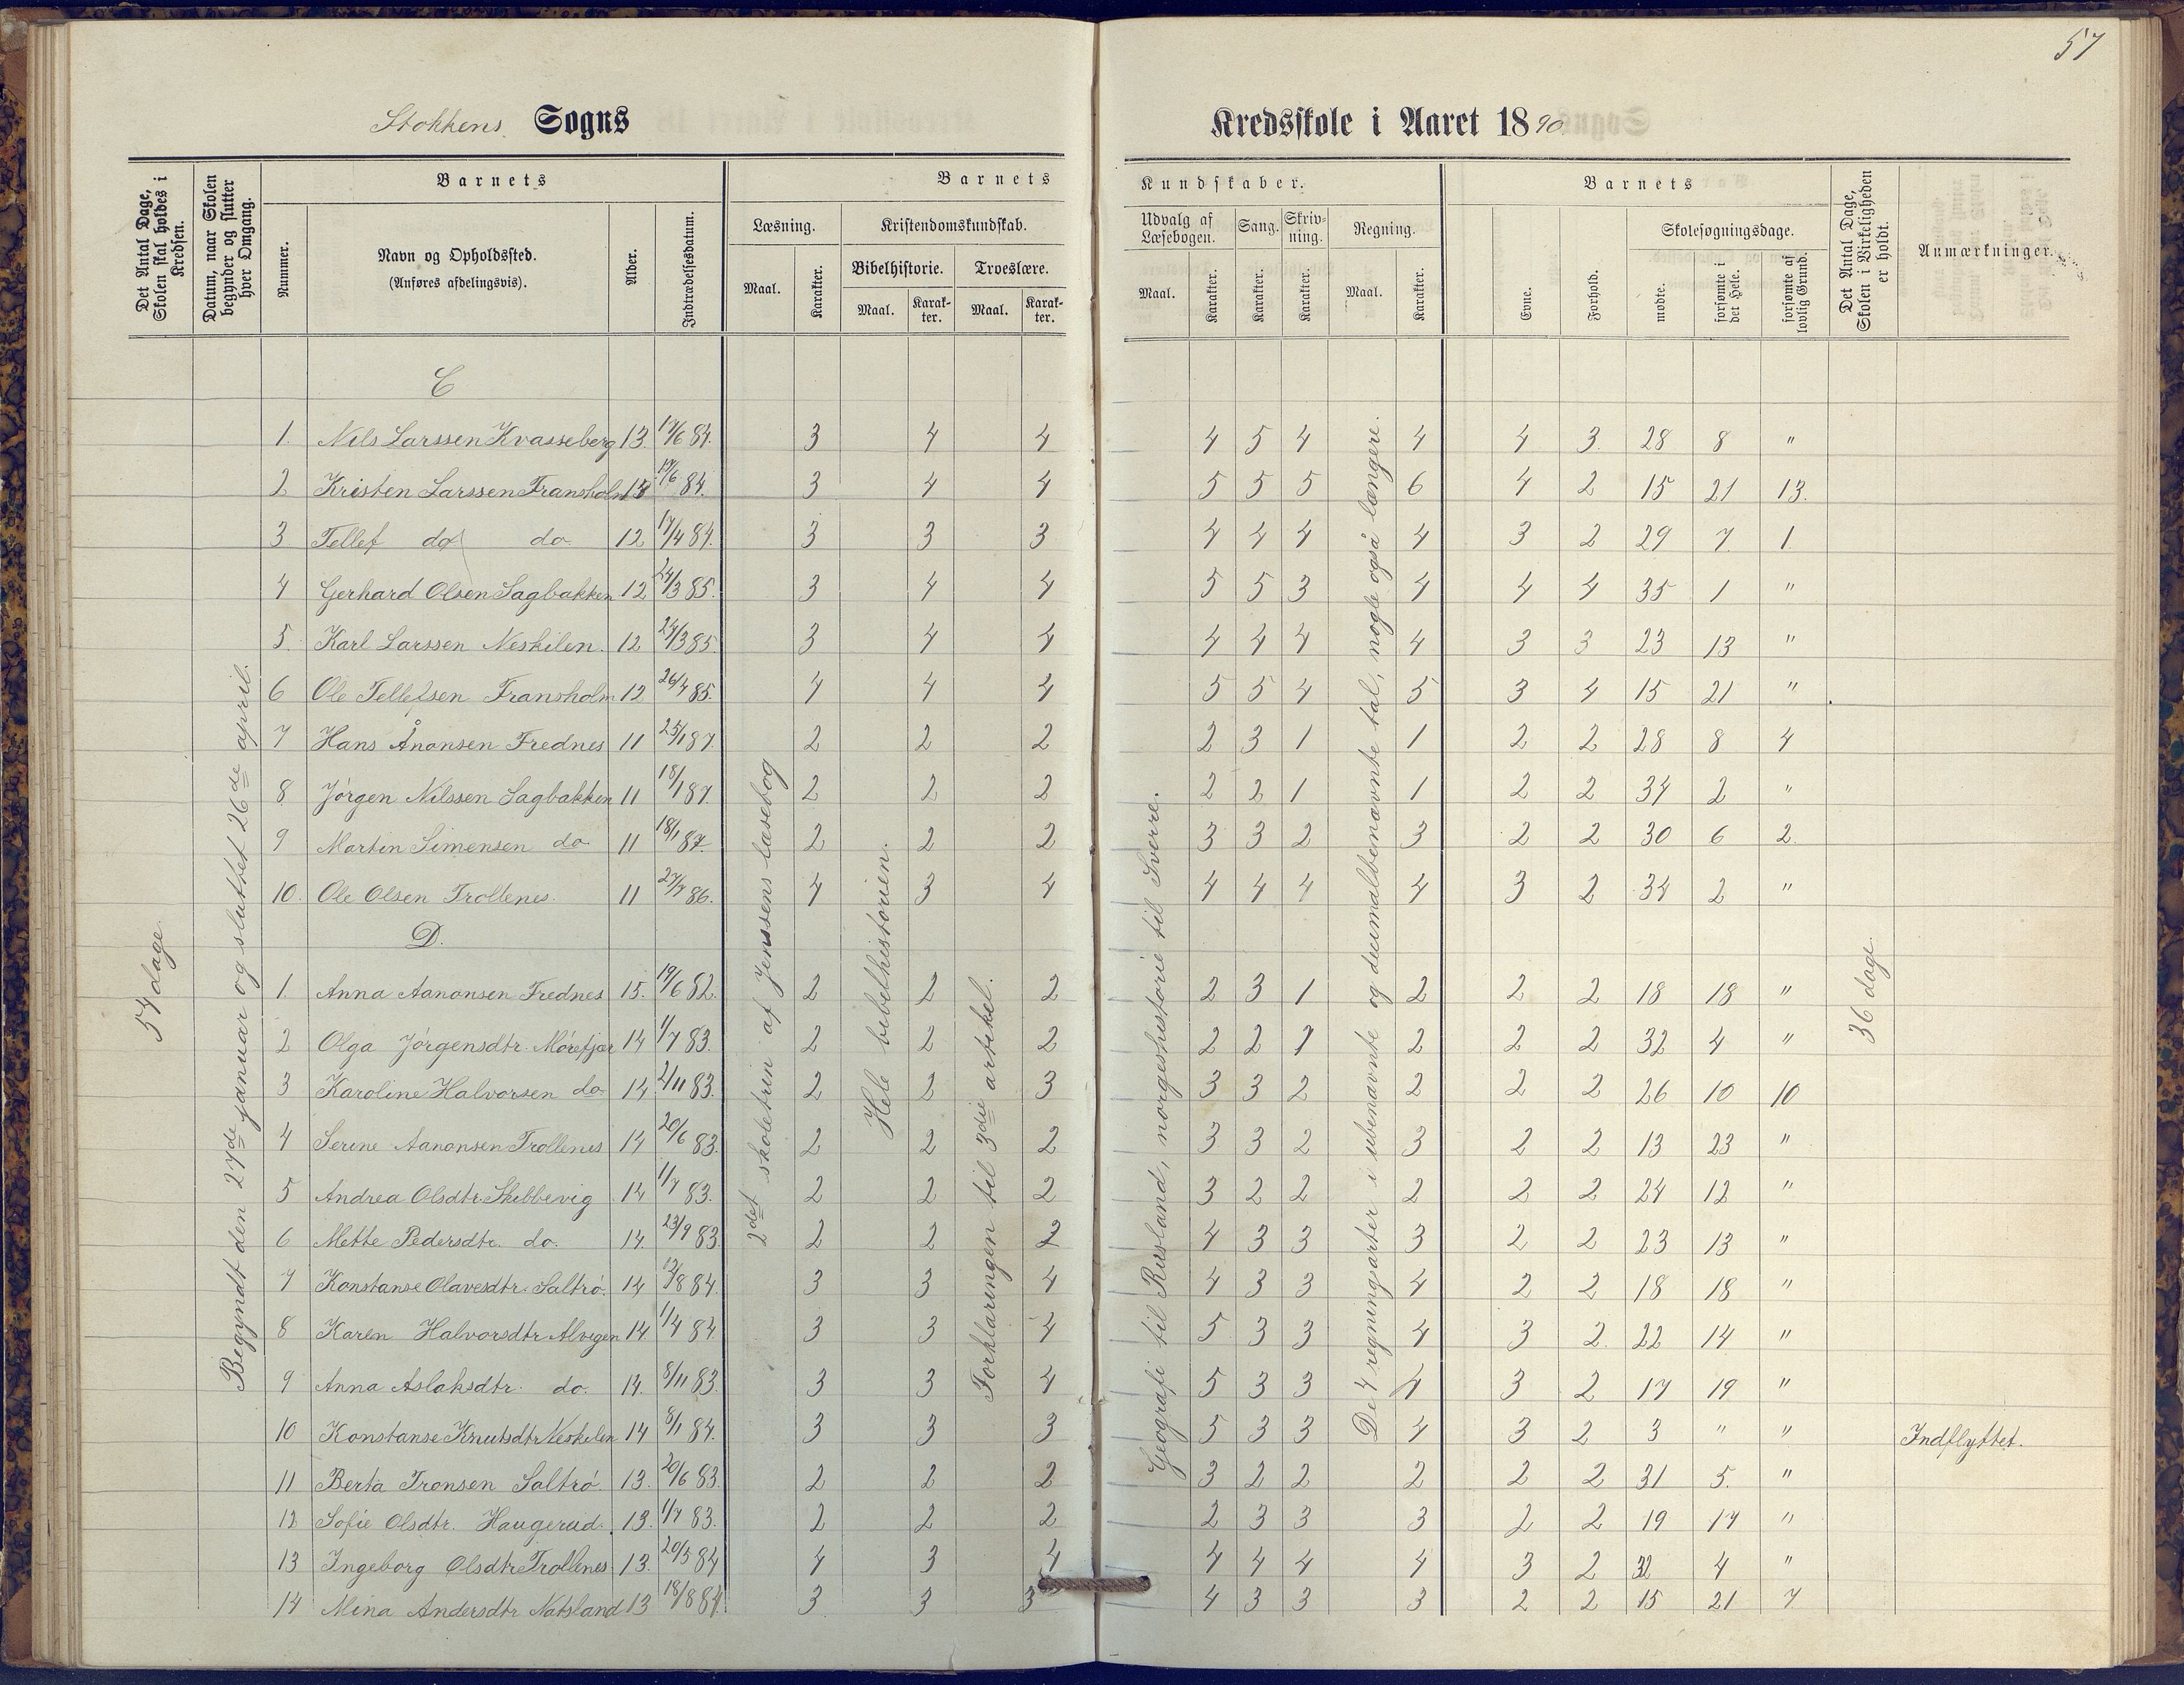 57
Stokkens Sogns Kredsskole i Aaret 1890
Det Antal Dage, Skolen skal holdes i Kredsen.
Datum, naar Skolen begynder og slutter hver Omgang.
Barnets
Nummer.
Navn og Opholdssted.
(Anføres afdelingsvis).
Alder.
Indtrædelsesdatum.
Barnets Kundskaber.
Læsning.
Maal.
Karakter.
Kristendomskundskab.
Bibelhistorie.
Maal.
Karakter.
Troeslære.
Maal.
Karakter.
Udvalg af Læsebogen.
Maal.
Karakter.
Sang.
Karakter.
Skrivning.
Karakter.
Regning.
Maal.
Karakter.
Barnets
Evne.
Forhold.
Skolesøgningsdage.
mødte.
forsømte i det Hele.
forsømte af lovlig Grund.
Det Antal Dage, Skolen i Virkeligheden er holdt.
Anmærkninger.
54 dage
Begyndt den 27de januar og sluttet 26de april.
2det skoletrin af Jenssens læsebog
Hele bibelhistorien.
Forklaringen til 3die artikel.
Geografi til Rusland, norgeshistorie til Sverre.
De 4 regningsarter i ubenævnte og deeimalbenævnte tal, nogle også længere.
36 dage.
C
1. Nils Larssen Kvasseberg 13. 17/6 84. 3 4 4 4 5 4 4 4 3. 28 8 "
2 Kristen Larssen Fransholm 13 17/6 84. 3 4 4 5 5 5 6 4 2 15 21 13.
3 Tellef do do 12 17/4 84. 3 3 3 4 4 4 4 3 2 29 7 1
4 Gerhard Olsen Sagbakken 12 24/3 85. 3 4 4 5 5 3 4 4 4 35 1 "
5. Karl Larssen Neskilen. 12 24/3 85. 3 4 4 4 4 4 4 3 3 23 13 "
6 Ole Tellefsen Fransholm 12 26/4 85. 4 4 4 5 5 4 5 3 4 15 21 "
7 Hans Ånonsen Frednes 11 25/1 87. 2 2 2 2 3 1 1 2 2 28 8 4
8 Jörgen Nilssen Sagbakken 11 18/1 87. 2 2 2 2 2 1 1 2 2 34 2 "
9 Martin Simensen do 11 18/1 87. 2 2 2 3 3 2 3 2 2 30 6 2.
10. Ole Olsen Trollenes. 11 27/7 86. 4 3 4 4 4 4 4 3 2 34 2 "
D.
1. Anna Aanonsen Frednes 15. 19/6 82. 2 2 2 2 3 1 2 2 2 18 18 "
2 Olga Jörgensdtr. Mörefjær 14 1/7 83. 2 2 2 2 2 1 2 2 2 32 4 "
3 Karoline Halvorsen do 14. 2/11 83. 2 2 3 3 3 2 2 2 2 26 10 10
4 Serine Aanonsen Trollenes 14 20/6 83. 2 2 2 3 3 2 3 2 2 13 23 "
5 Andrea Olsdtr. Skibbevig 14 1/7 83. 2 2 2 3 2 2 2 2 2 24 12 "
6 Mette Pedersdtr. do. 14. 23/9 83. 2 2 2 4 3 3 3 2 2 23 13 "
7 Konstanse Olavesdtr. Saltrö. 14 12/8 84. 3 3 4 4 3 3 4 2 2 18 18 "
8 Karen Halvorsdtr Alvegen 14. 1/4 84 3 3 4 5 3 3 4 3 2. 22 14 "
9 Anna Aslaksdtr. do. 14. 8/11 83. 3 3 4 5 3 3 4 3 2 17 19 "
10 Konstanse Knutsdtr Neskilen 14 8/1 84. 3 3 3 5 3 3 4 3 2 3 " " Indflyttet.
11 Berta Tronsen Saltrö 13. 20/6 83. 2 2 2 3 2 2 2 2 2 31 5. "
12 Sofie Olsdtr. Haugerud. 13. 1/7 83. 2 2 2 2 3 3 3 2 2 19 17 "
13 Ingeborg Olsdtr Trollenes 13. 20/5 84 4 3 4 4 4 4 4 3 2 32 4 "
14 Mina Andersdtr Natsland 13 18/8 84. 3 3 3 4 3 3 3 2 2 15 21 7